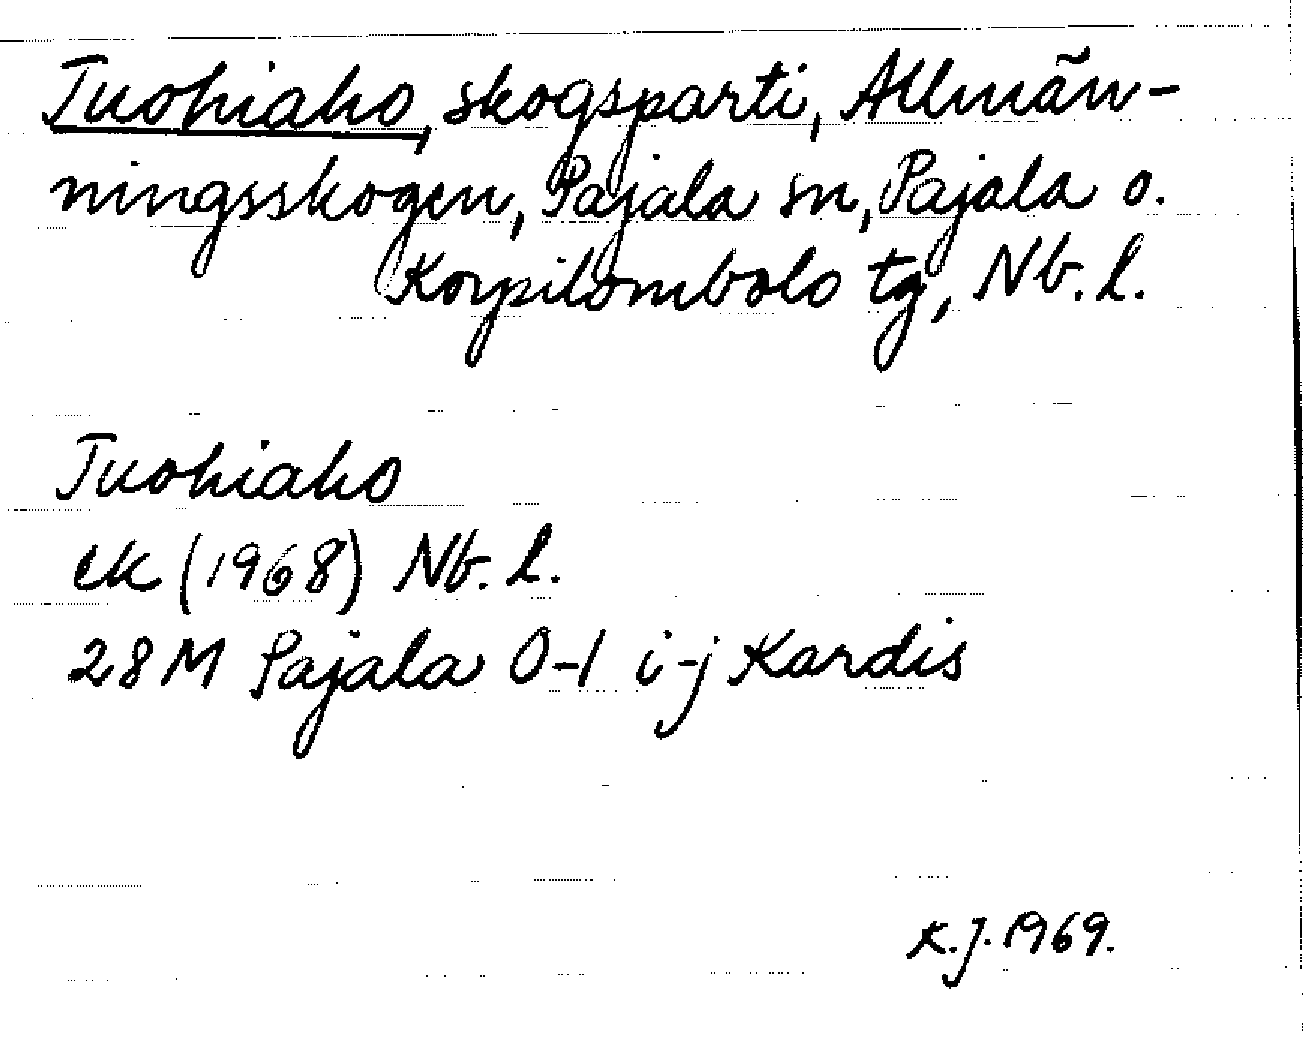 Tuohiaho, skogsparti, Allmän-
ningsskogen, Pajala sn, Pajala o.
Korpilombolo tg, Nb. l.
Tuohiaho
ek (1968) Nb. l.
28 M Pajala 0-1 i-j Kardis
K.J. 1969.